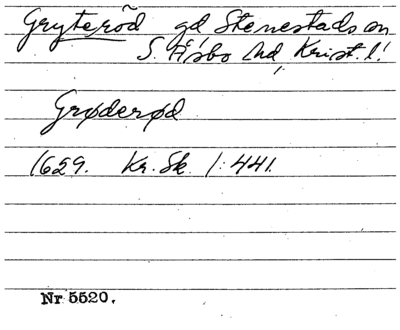 Gryteröd gd Stenestads sn
S. Åsbo hd, Krist. l.
Grøderød
1629. Kr. Sk. 1:441.
Nr 5520.